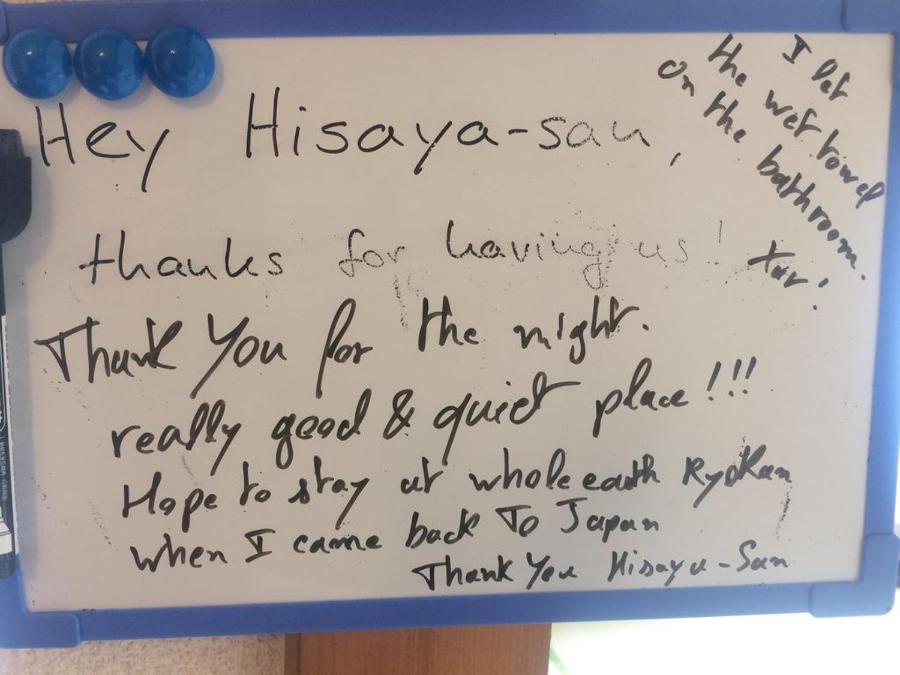 Hey Hisaya-san,
thanks for having us!
Thank You for the night.
really good & quiet place!!!
Hope to stay at whole earth RyoKan
when I came back To Japan
Thank You Hisaya-San
I let
the wet towel
on the bathroom.